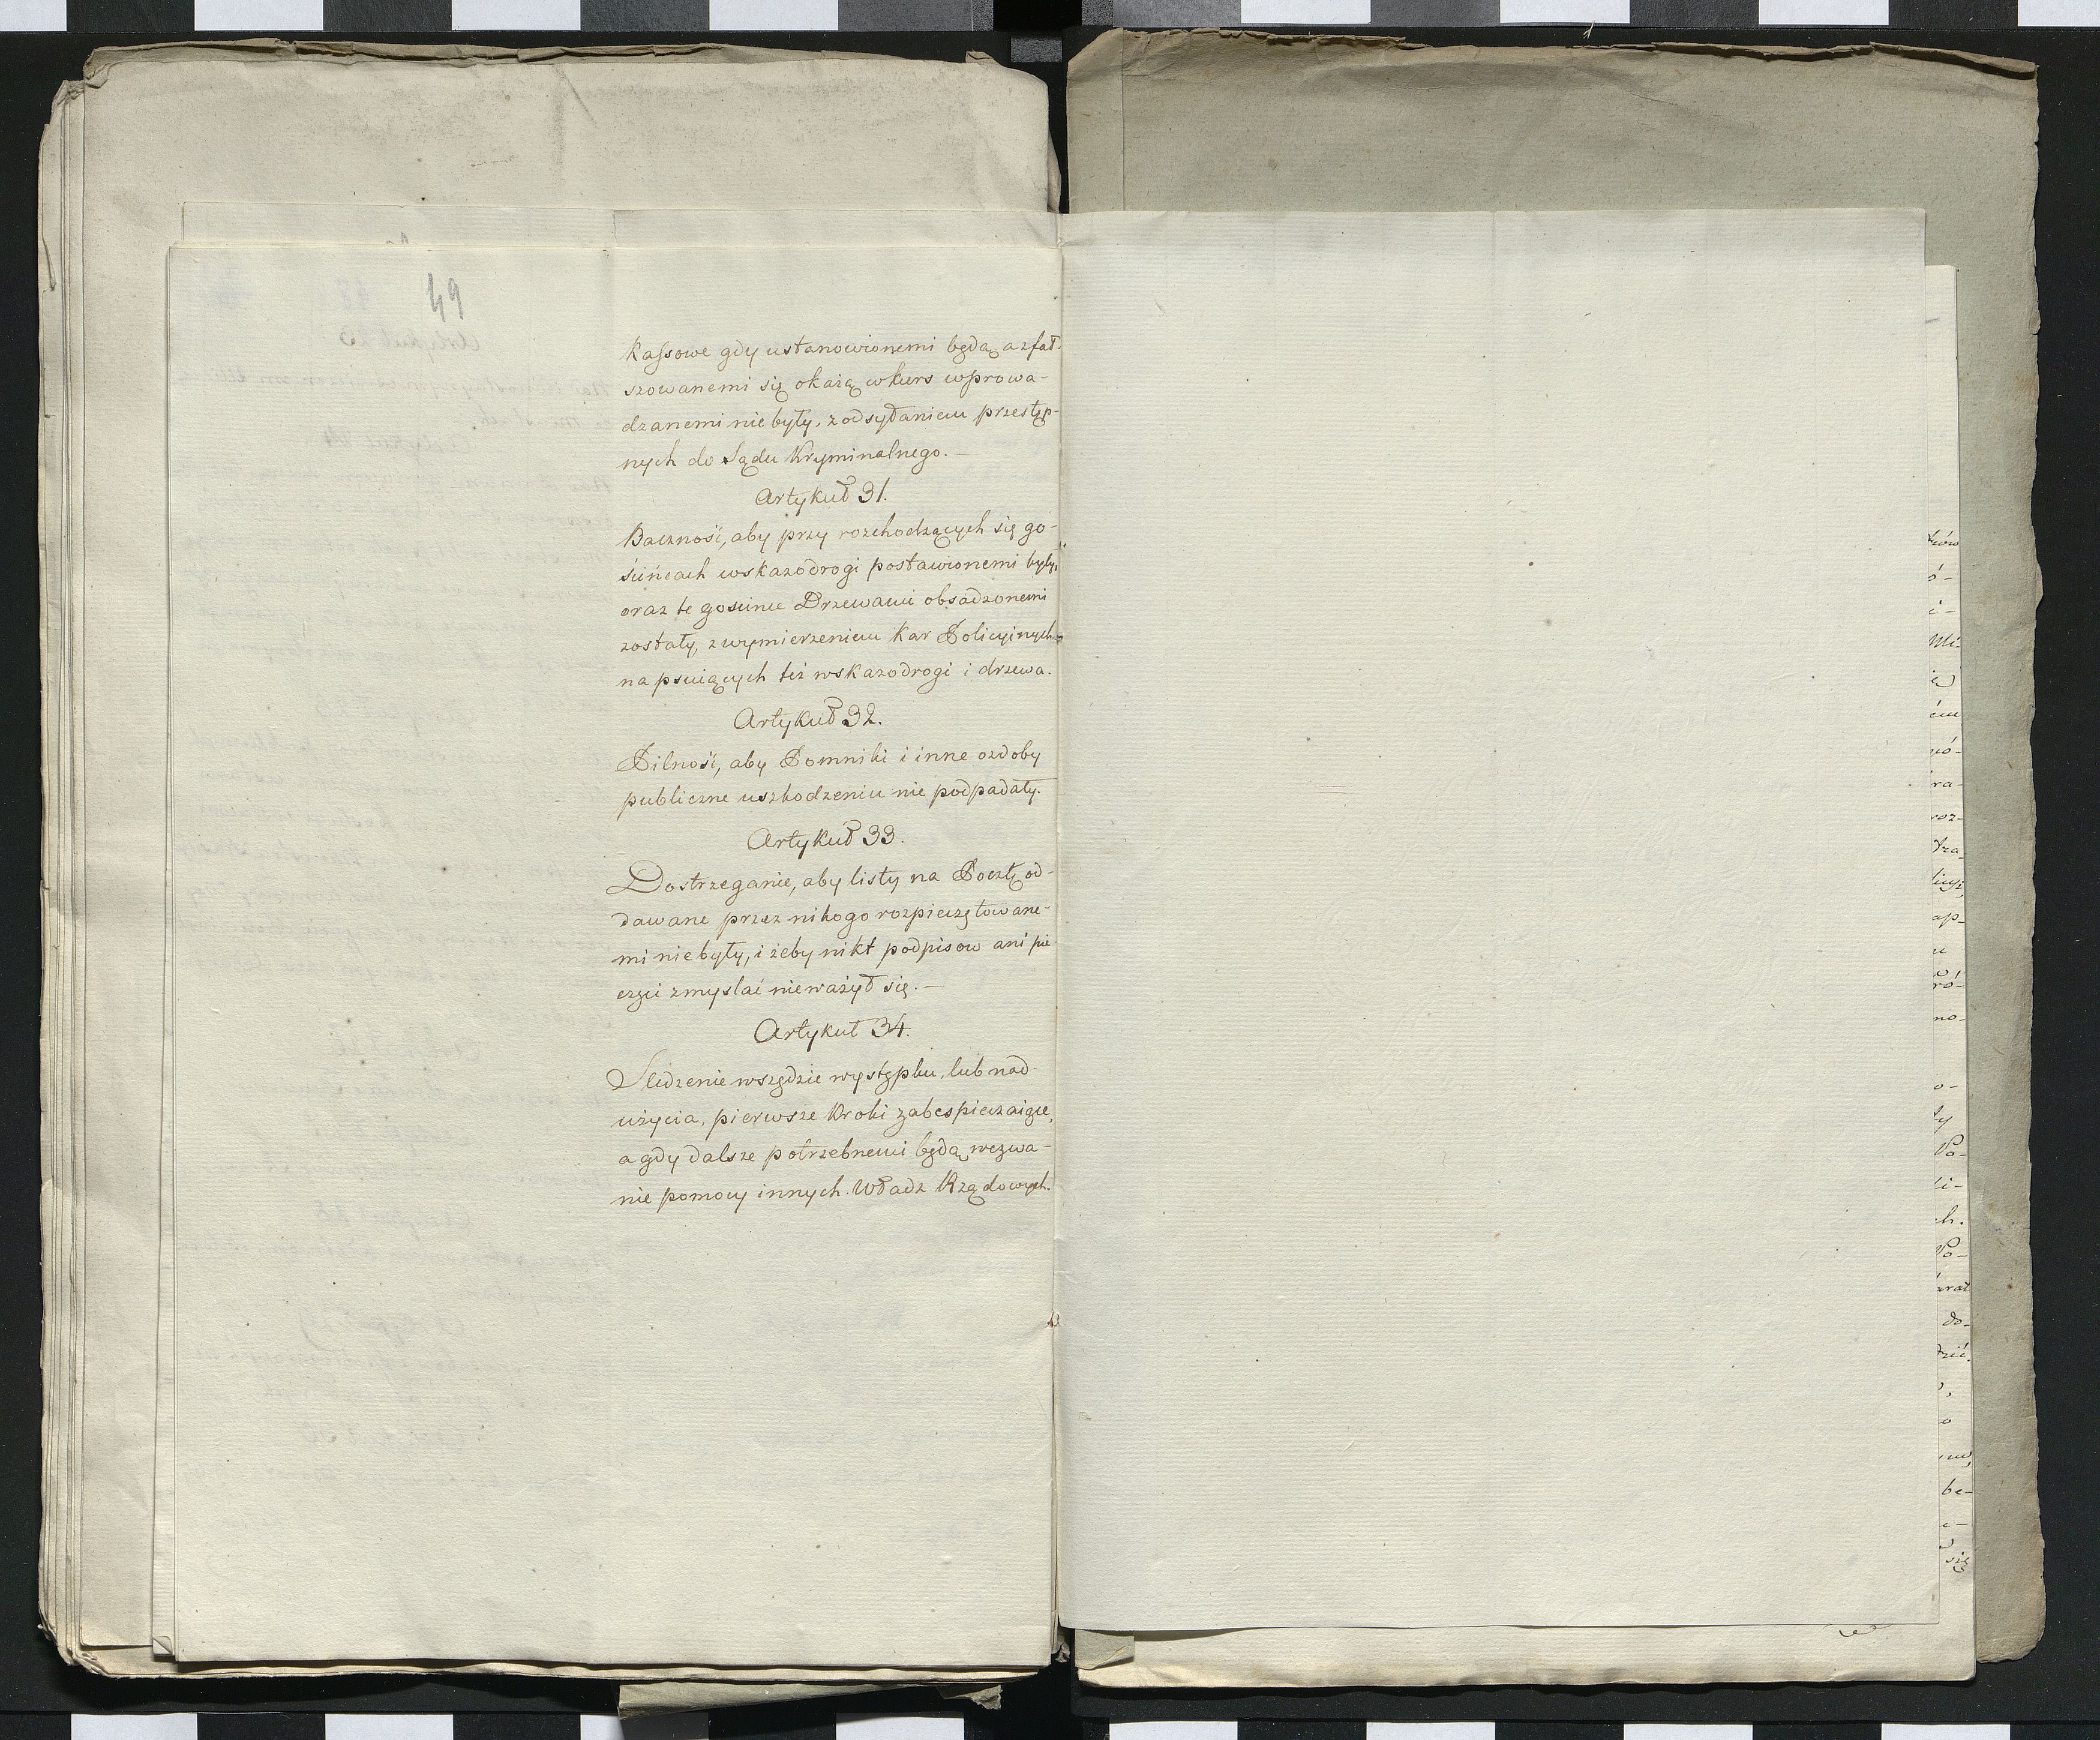 49
Kassowe gdy ustanowionemi będą a zfał-
szowanemi się okażą w kurs wprowa-
dzanemi nie były, z odsyłaniem przestęp-
nych do Sądu Kryminalnego. —
Artykuł 31.
Baczność, aby przy rozchodzących się go-
ścińcach wskazodrogi postawionemi były,
oraz te goścince Drzewami obsadzonemi
zostały, z wymierzeniem Kar Policyinych
na psuiących też wskazodrogi i drzewa.
Artykuł 32.
Pilność, aby Pomniki i inne ozdoby
publiczne uszkodzeniu nie podpadały.
Artykuł 33.
Dostrzeganie, aby listy na Pocztę od-
dawane przez nikogo rozpieczętowane-
mi nie były, i żeby nikt podpisow ani pie-
częci zmyslać nieważył się. —
Artykuł 34.
Sledzenie wszędzie występku, lub nad-
użycia, pierwsze Kroki zabespieczaiące,
a gdy dalsze potrzebnemi będą wezwa-
nie pomocy innych Władz Rządowych.